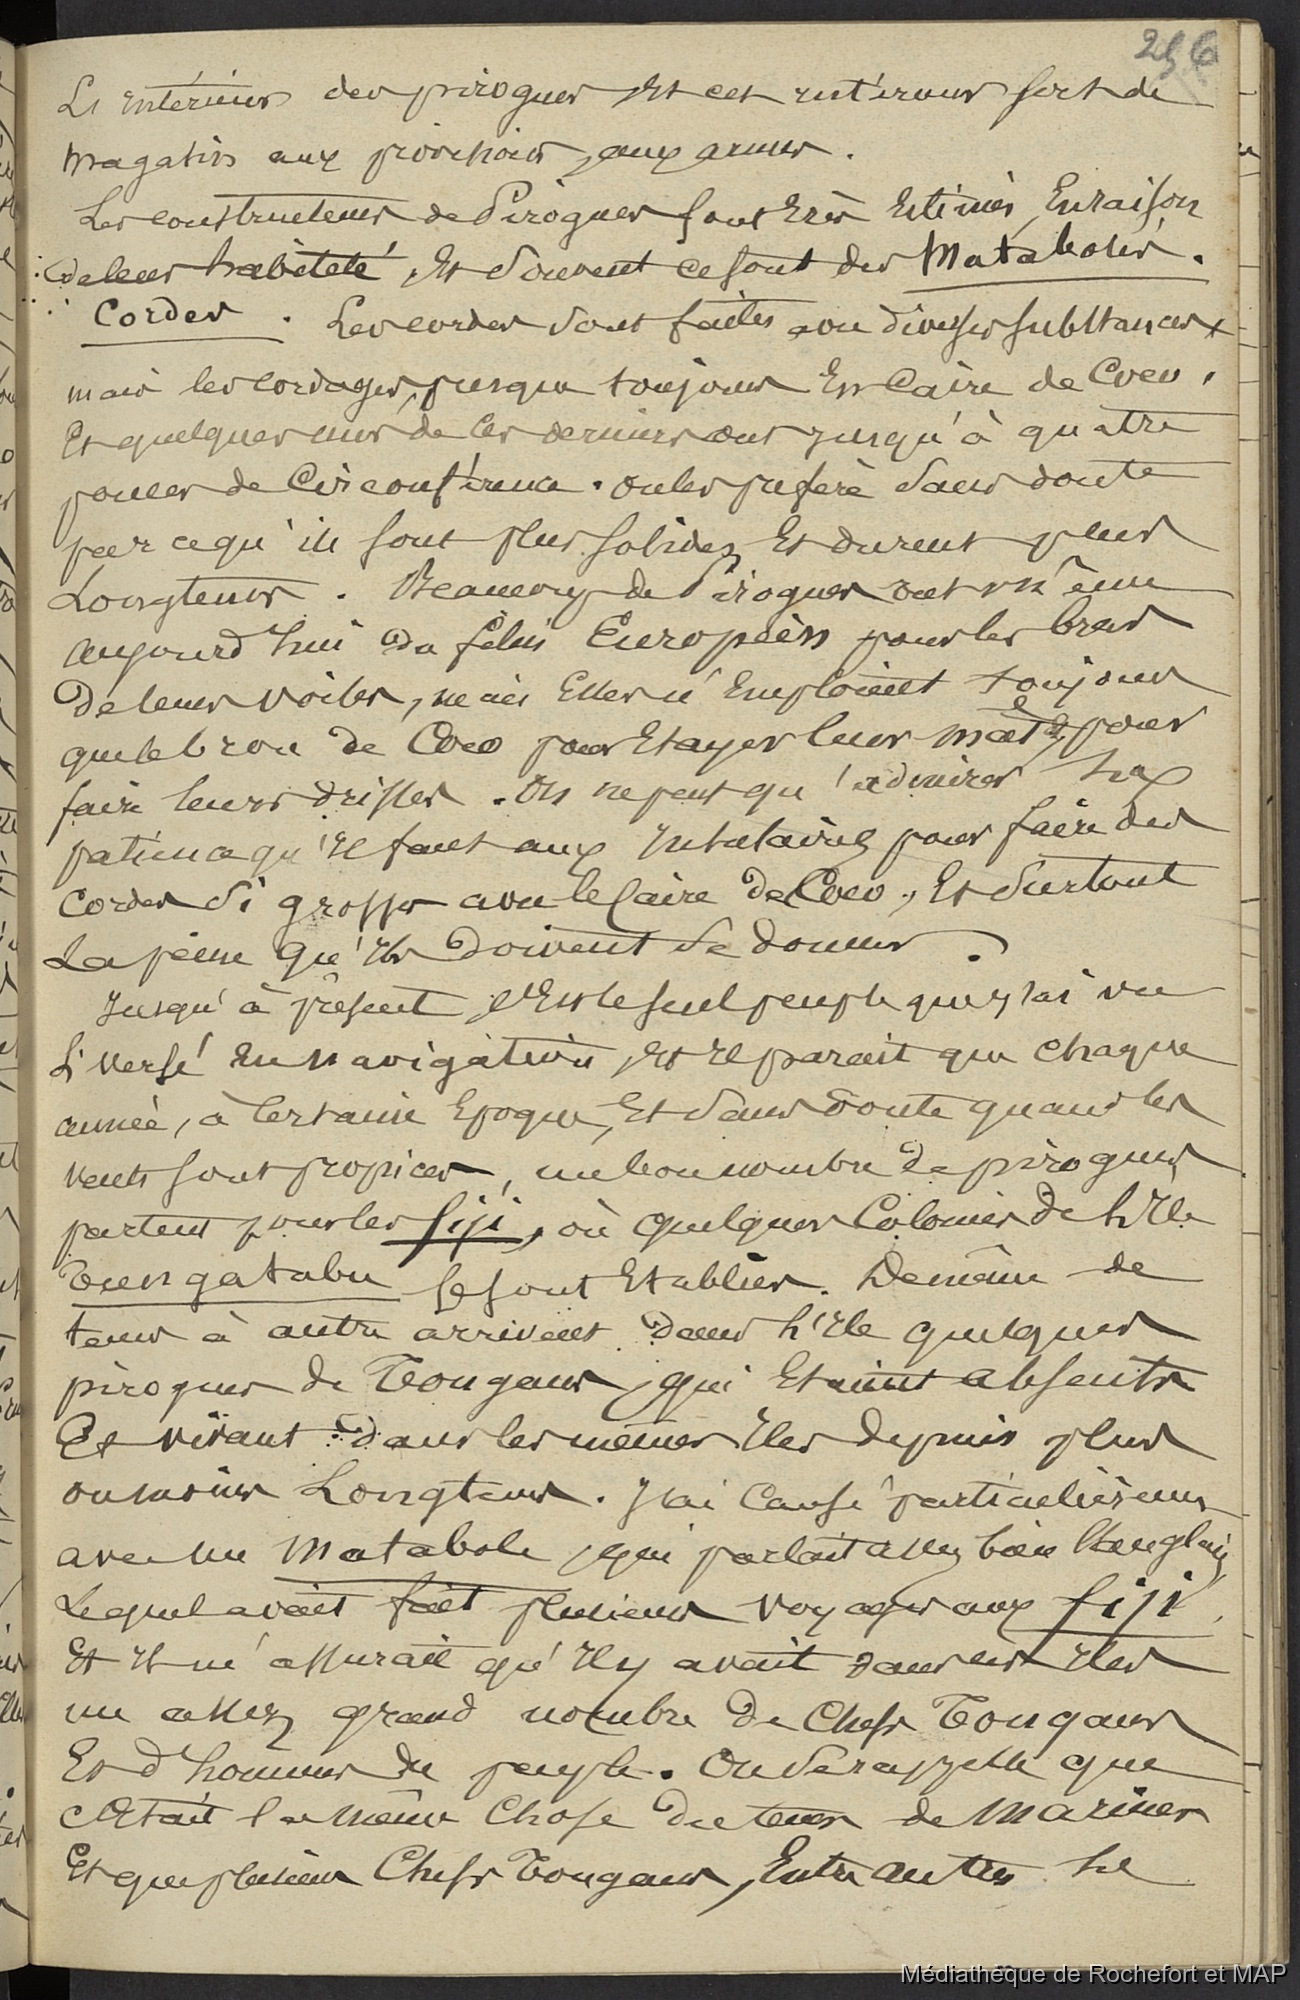 256
L'intérieur des pirogues, Et cet intérieur sert de
magasin aux provisions, aux armes.
Les constructeurs de Pirogues sont très Estimés, En raison
de leur habileté, Et souvent ce sont des Mataboles.
Cordes. Les cordes sont faites avec diverses substances,
mais les cordages, presque toujours En Caire de Coco,
Et quelques uns de ces derniers ont jusqu'à quatre
pouces de Circonférence. on les préfère sans doute
parce qu'ils sont plus solides, Et durent plus
Longtems. Beaucoup de Pirogues ont même
aujourd'hui du filin Européen pour les bras
de leurs voiles, mais Elles n'Emploient toujours
que le brou de Coco pour Etayer leurs mâts, pour
faire leurs drisses. On ne peut qu'admirer la
patience qu'il faut aux Insulaires pour faire des
Cordes si grosses avec le Caire de Coco, Et surtout
La peine qu'ils doivent se donner.
Jusqu'à présent, c'Est le seul peuple que j'ai vu
si versé En navigation, Et il parait que chaque
année, à Certaine Epoque, Et sans doute quand les
vents sont propices, un bon nombre de pirogues
partent pour les fiji, où quelques Colonies de l'Ile
Tungatabu se sont Etablies. De même de
tems à autre arrivent dans l'Ile quelques
pirogues de Tongans, qui Etaient absents
Et vivant dans les mêmes Iles depuis plus
ou moins Longtems. J'ai Causé particulièremt
avec un Matabole, qui parlait assez bien l'anglais,
Lequel avait fait plusieurs voyages aux fiji,
Et Il m'assurait qu'Il y avait dans ces Iles
un assez grand nombre de Chefs Tongans
Et d'hommes du peuple. On se rappelle que
c'Etait la même Chose du tems de Mariner
Et que plusieurs Chefs Tongans, Entre autres le
Médiathèque de Rochefort et MAP